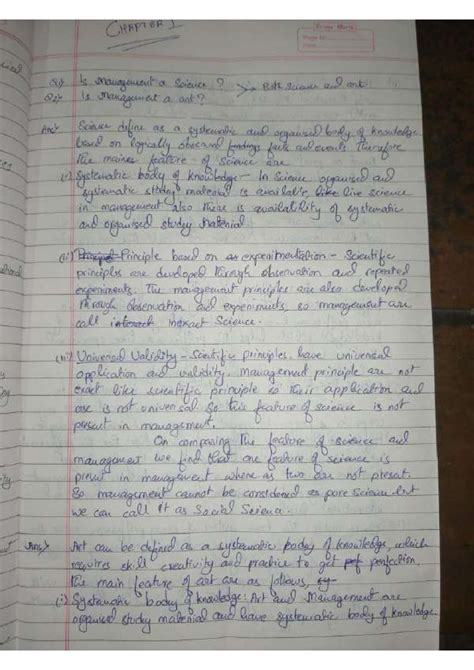 CHAPTER 1
Q1) Is Management a Science ? > Both science and art
Q2) Is Management a art ?
Ans) Science define as a systematic and organised body of knowledge
based on logically observed findings facts and events. Therefore
the maines feature of Science are
(i) Systematic body of knowledge - In Science organised and
systematic study material is available, like science
in management also there is availability of systematic
and organised study Material.
(ii) Principle based on experimentation - Scientific
principles are developed through observation and repeated
experiments. The management principles are also developed
through observation and experiments, so management are
call inexact Science.
(iii) Universal Validity - Scientific principles, have universal
application and validity, management principle are not
exact like scientific principle so their application and
use is not univercal so this feature of science is not
present in management.
On comparing the feature of science and
management we find that one feature of science is
present in management where as two are not present.
So management cannot be considered as pore Science but
we can call it as Social Science.
Ans) Art can be defined as a systematic body of knowledge, which
requires skill creativity and practice to get perfection.
the main feature of art are as follows,
(i) Systematic body of knowledge: Art and Management are
organised study material and have systematic body of knowledge